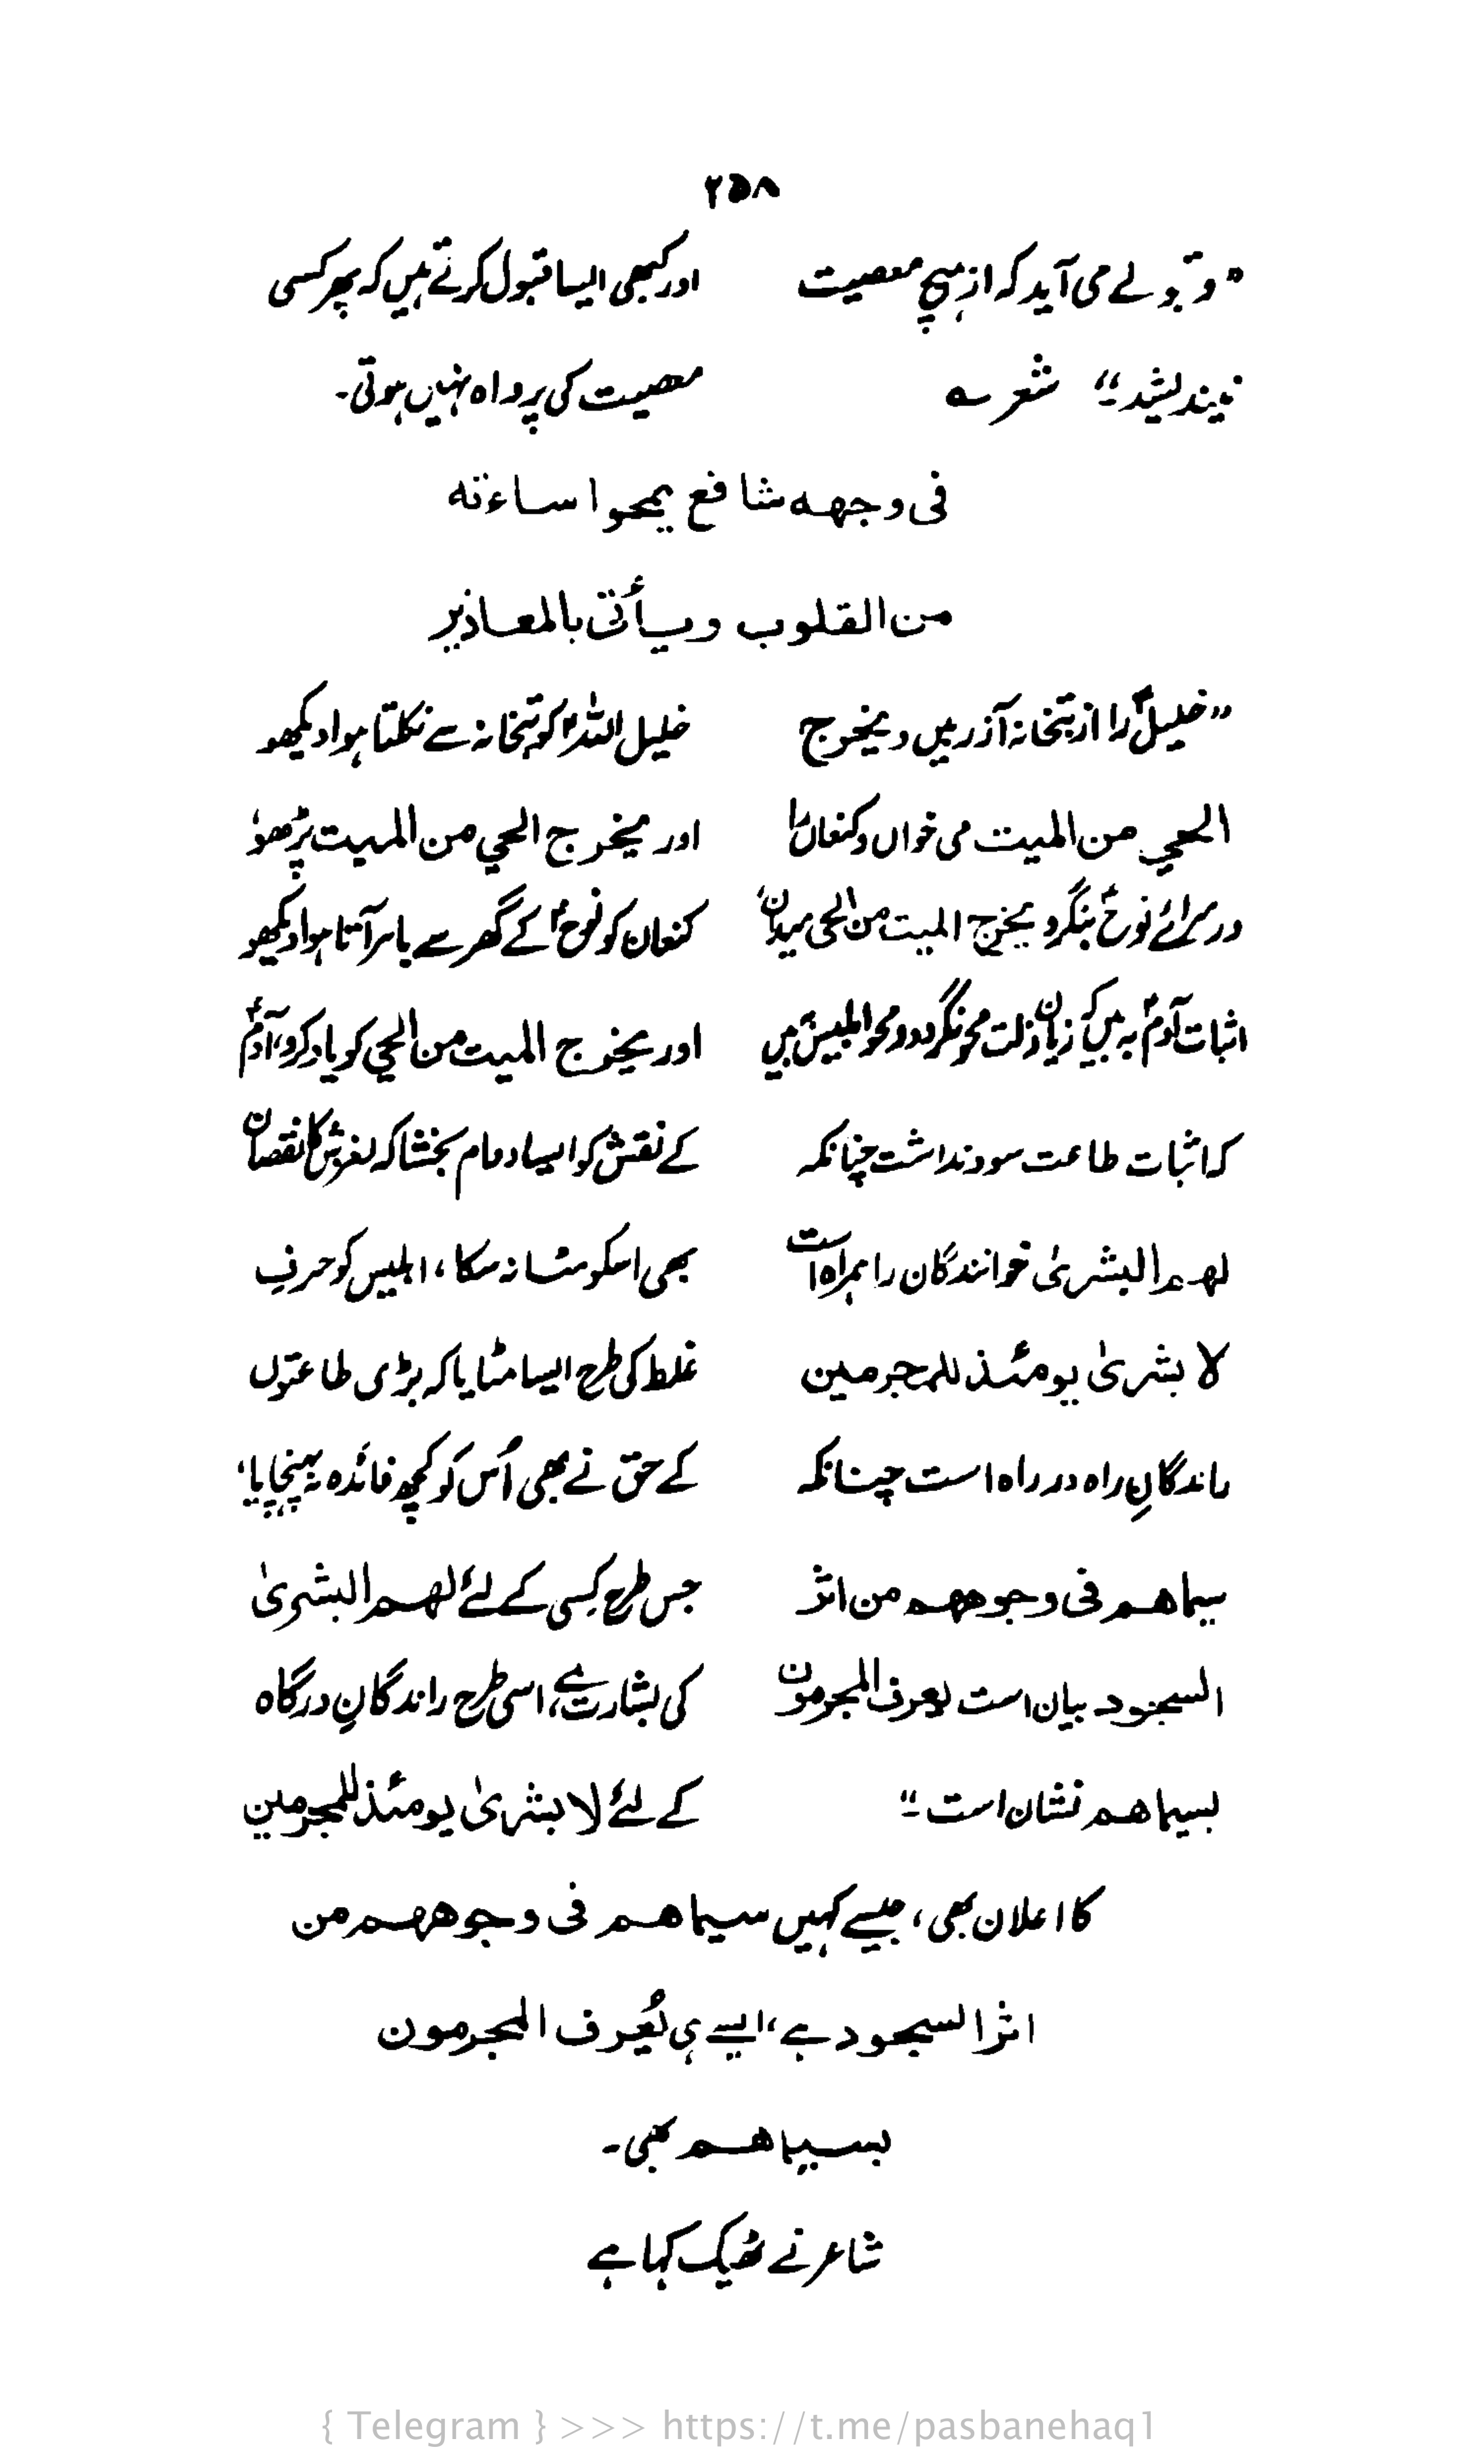 ۲۵۸
"وقبولے می آید کہ از ہیچ معصیت
نیندیشد" شعر ؎
اور کبھی ایسا قبول کرتے ہیں کہ پھر کسی
معصیت کی پرواہ نہیں ہوتی۔
فی وجهه شافع یمحوا ساءته
من القلوب ویأتی بالمعاذیر
"خلیلؑ را از بتخانہ آذر بیں و یخرج
الحی من المیت می خواں و کنعاں را
در سرائے نوحؑ بنگر و یخرج المیت من الحی میداں،
اثبات آدمؑ بہ بیں کہ زیان زلت محو نگردد و محو ابلیس بیں
کہ اثبات طاعت سود نداشت چنانکہ
لهم البشریٰ خوانندگان را ہمراہ است
لا بشریٰ یومئذ للمجرمین
راندگانِ راہ در راہ است چنانکہ
سیماهم فی وجوههم من اثر
السجود بیان است یعرف المجرمون
بسیماهم نشان است"
خلیل اللہؑ کو بتخانہ سے نکلتا ہوا دیکھو
اور یخرج الحی من المیت پڑھو،
کنعان کو نوحؑ کے گھر سے باہر آتا ہوا دیکھو
اور یخرج المیت من الحی کو یاد کرو، آدمؑ
کے نقش کو ایسا دوام بخشا کہ لغزش کا نقصان
بھی اسکو مٹا نہ سکا، ابلیس کو حرفِ
غلط کی طرح ایسا مٹایا کہ بڑی طاعتوں
کے حق نے بھی اُس کو کچھ فائدہ نہ پہنچایا،
جس طرح کسی کے لئے لهم البشریٰ
کی بشارت ہے، اسی طرح راندگانِ درگاہ
کے لئے لا بشریٰ یومئذ للمجرمین
کا اعلان بھی، جیسے کہیں سیماهم فی وجوههم من
اثر السجود ہے، ایسے ہی یُعرف المجرمون
بسیماهم بھی۔
شاعر نے ٹھیک کہا ہے
{ Telegram } >>> https://t.me/pasbanehaq1